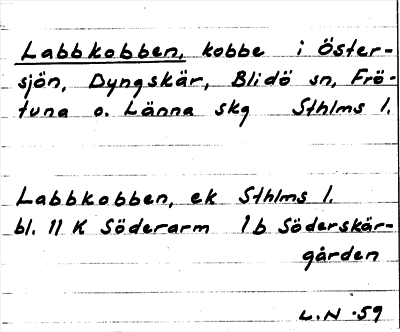 Labbkobben, kobbe i Öster-
sjön, Dyngskär, Blidö sn, Frö-
tuna o. Länna skg Sthlms l.
Labbkobben, ek Sthlms l.
bl. 11 K Söderarm 1b Söderskär-
gården
L.N -59